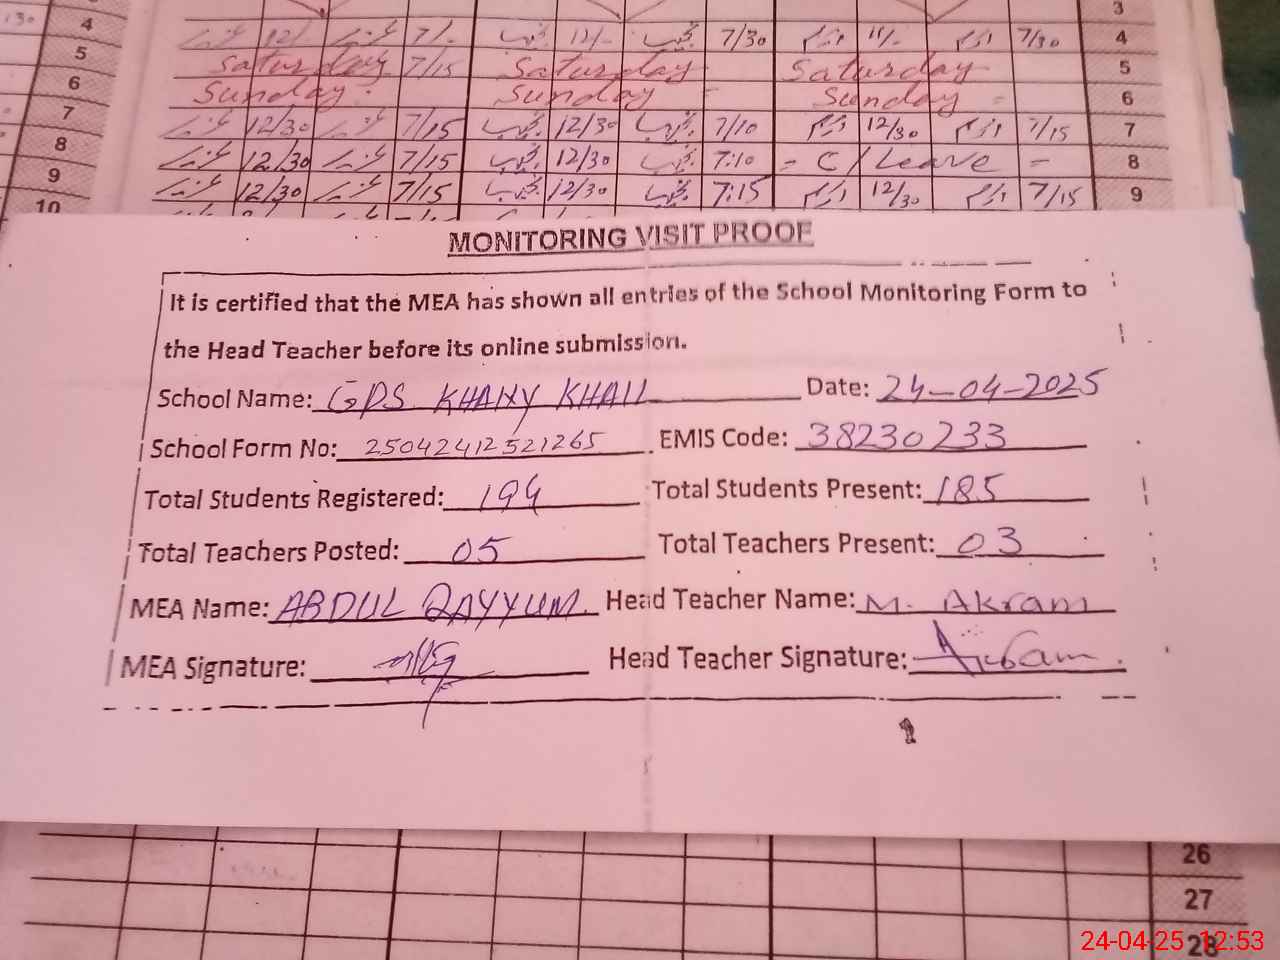 3
4 12/- 7/- 12/- 7/30 11/- 7/30 4
5 Saturday 7/15 Saturday Saturday 5
6 Sunday Sunday Sunday 6
7 12/30 7/15 12/30 7/10 12/30 7/15 7
8 12/30 7/15 12/30 7:10 - C/Leave - 8
9 12/30 7/15 12/30 7:15 12/30 7/15 9
10
MONITORING VISIT PROOF
It is certified that the MEA has shown all entries of the School Monitoring Form to
the Head Teacher before its online submission.
School Name: GPS KHANY KHAIL Date: 24-04-2025
School Form No: 25042412521265 EMIS Code: 38230233
Total Students Registered: 194 Total Students Present: 185
Total Teachers Posted: 05 Total Teachers Present: 03
MEA Name: ABDUL QAYYUM. Head Teacher Name: M. Akram
MEA Signature: Head Teacher Signature: Akram.
26
27
28
24-04-25 12:53